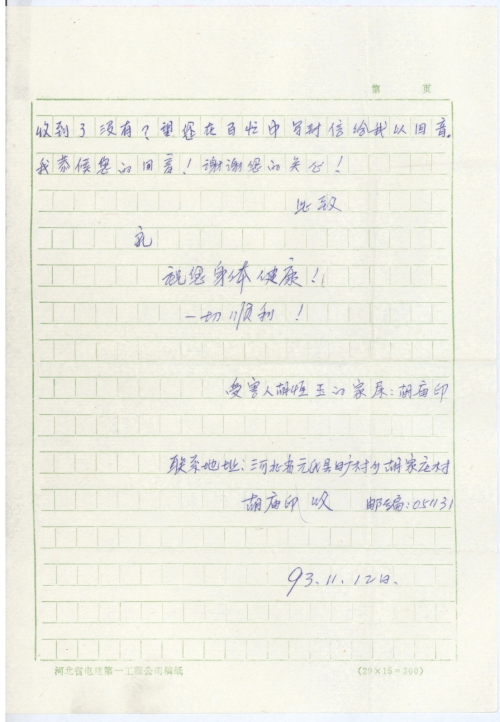 第 页
收到了没有？望您在百忙中写封信给我以回音。
我恭候您的回音！谢谢您的关心！
此致
礼
祝您身体健康！
一切顺利！
受害人胡恒玉的家属：胡庙印
联系地址：河北省元氏县旷村乡胡家庄村
胡庙印收 邮编：051131
93.11.12日.
河北省电建第一工程公司稿纸 (20×15=300)